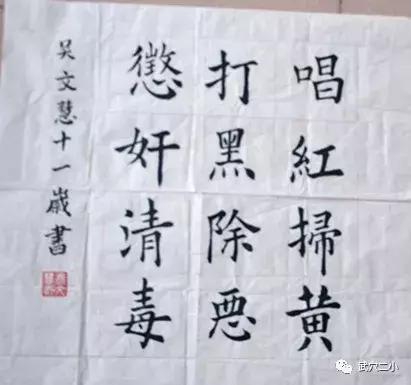 唱紅掃黄
打黑除悪
懲奸清毒
吴文慧十一嵗書
武穴二小